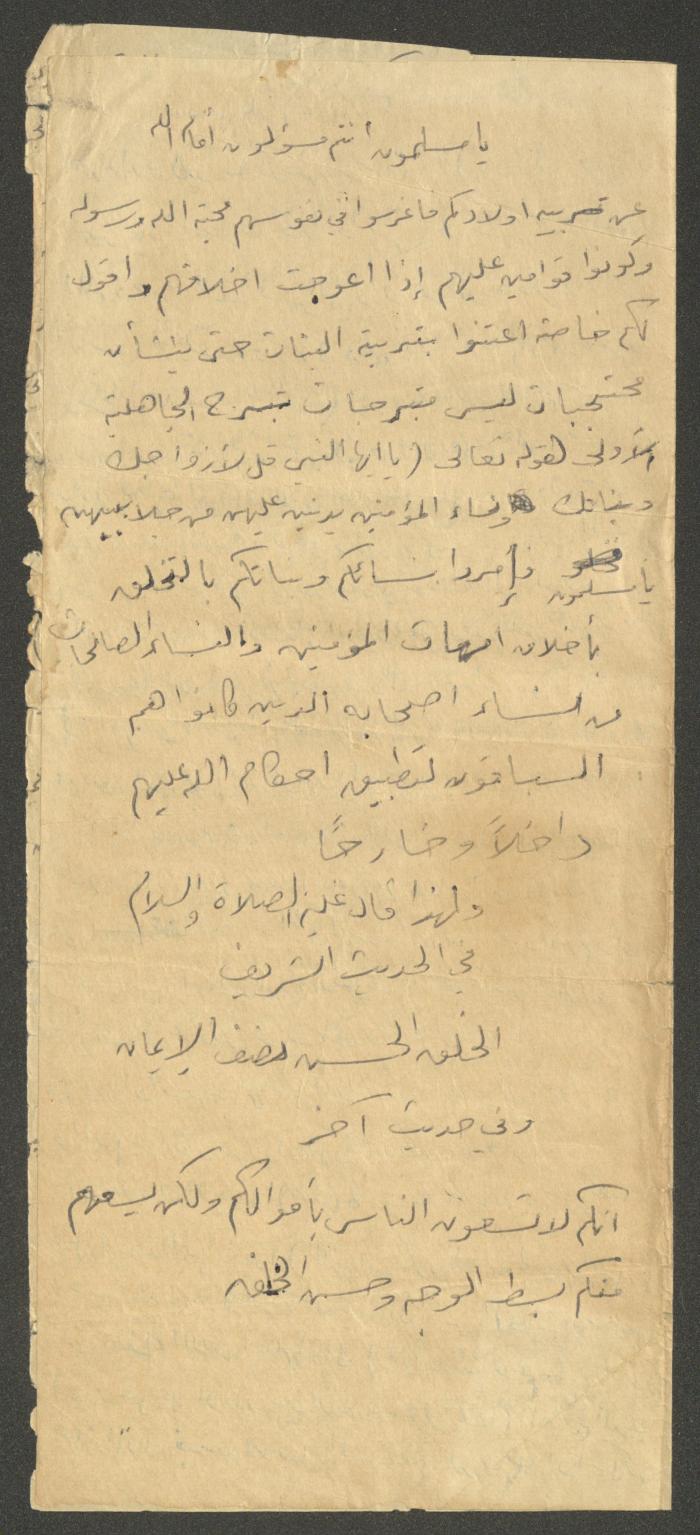 يا مسلمون أنتم مسؤلون أمام الله
عن تربيه اولادكم فاغرسوا في نفوسهم محبة الله ورسوله
وكونوا قوامين عليهم إذا اعوجت اخلاقهم واقول
لكم خاصة اعتنوا بتربية البنات حتى ينشأن
محتجبات ليس متبرجات تبرج الجاهلية
الأولى لقوله تعالى (يا ايها النبي قل لأزواجك
وبناتك ونساء المؤمنين يدنين عليهن من جلابيبهن
يا مسلمون فأمروا نسائكم وبناتكم بالتخلق
بأخلاق امهات المؤمنين والنساء الصالحات
من نساء اصحابه الذين كانوا هم
السباقون لتطبيق احكام الله عليهم
داخلاً وخارجًا
ولهذا قال عليه الصلاة والسلام
في الحديث الشريف
الخلق الحسن نصف الإيمان
وفي حديث آخر
انكم لا تسعون الناس بأموالكم ولكن يسعهم
منكم بسط الوجه وحسن الخلق